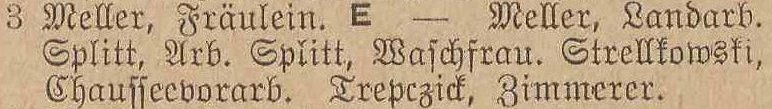 3 Meller, Fräulein. E — Meller, Landarb.
Splitt, Arb. Splitt, Waſchfrau. Strellkowski,
Chauſſeevorarb. Trepczick, Zimmerer.